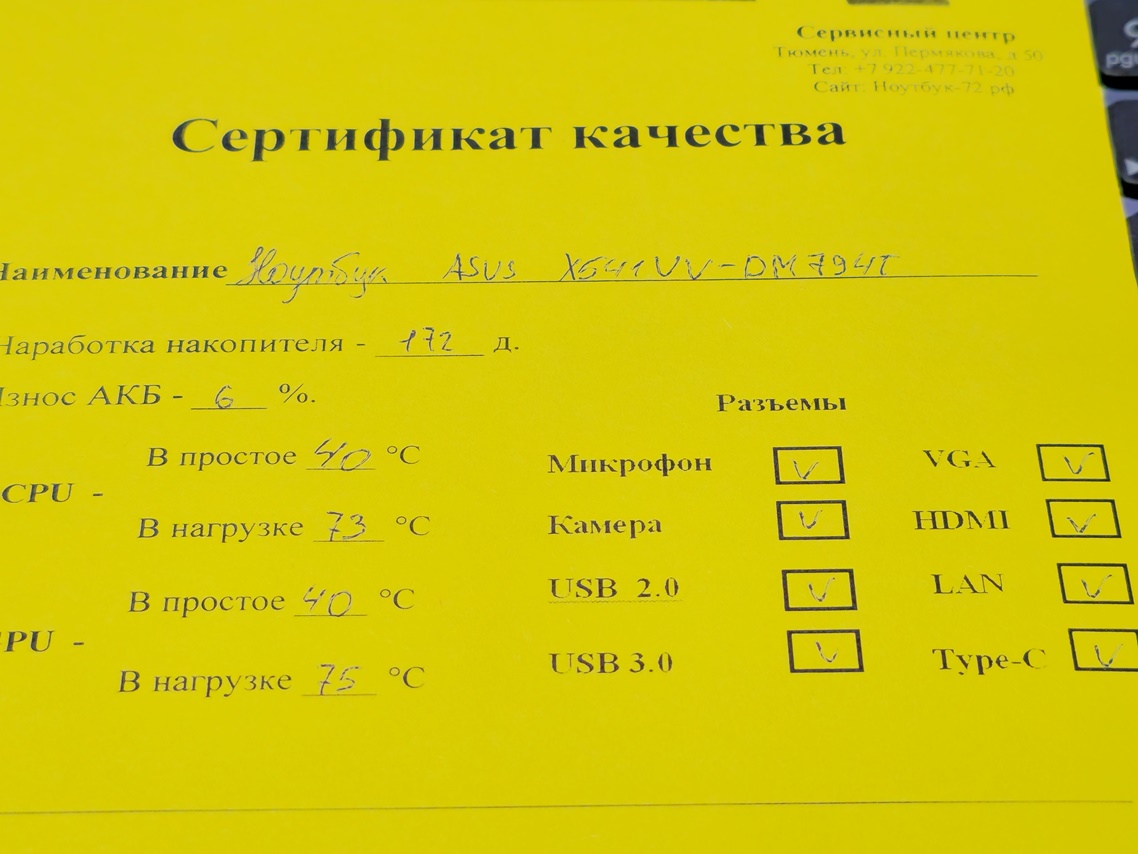 Сервисный центр
Тюмень, ул. Пермякова, д 50
Тел: +7 922-477-71-20
Сайт: Ноутбук-72 рф
Сертификат качества
Наименование Ноутбук ASUS X541UV-DM794T
Наработка накопителя - 172 д.
Износ АКБ - 6 %.
Разъемы
В простое 40 °C
CPU -
В нагрузке 73 °C
В простое 40 °C
PU -
В нагрузке 75 °C
Микрофон V VGA V
Камера V HDMI V
USB 2.0 V LAN V
USB 3.0 V Type-C V